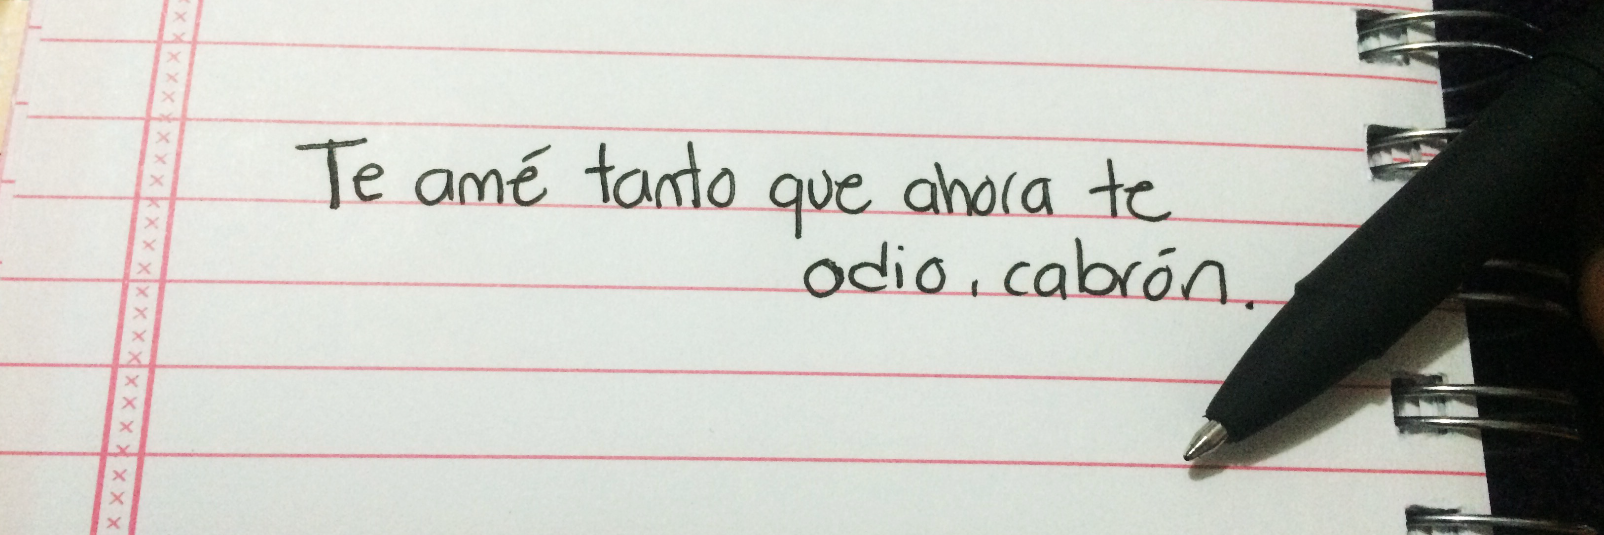 Te amé tanto que ahora te
odio, cabrón.